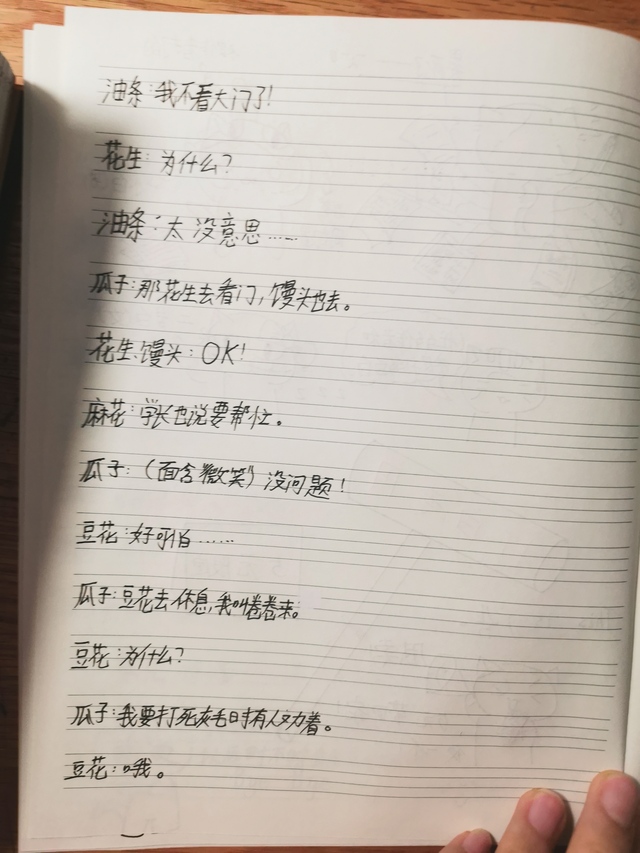 油条:我不看大门了!
花生:为什么?
油条:太没意思……
瓜子:那花生去看门,馒头也去。
花生、馒头:OK!
麻花:学长也说要帮忙。
瓜子:(面含“微笑”)没问题!
豆花:好可怕……
瓜子:豆花去休息,我叫卷卷来。
豆花:为什么?
瓜子:我要打死灰毛时有人劝着。
豆花:哦。